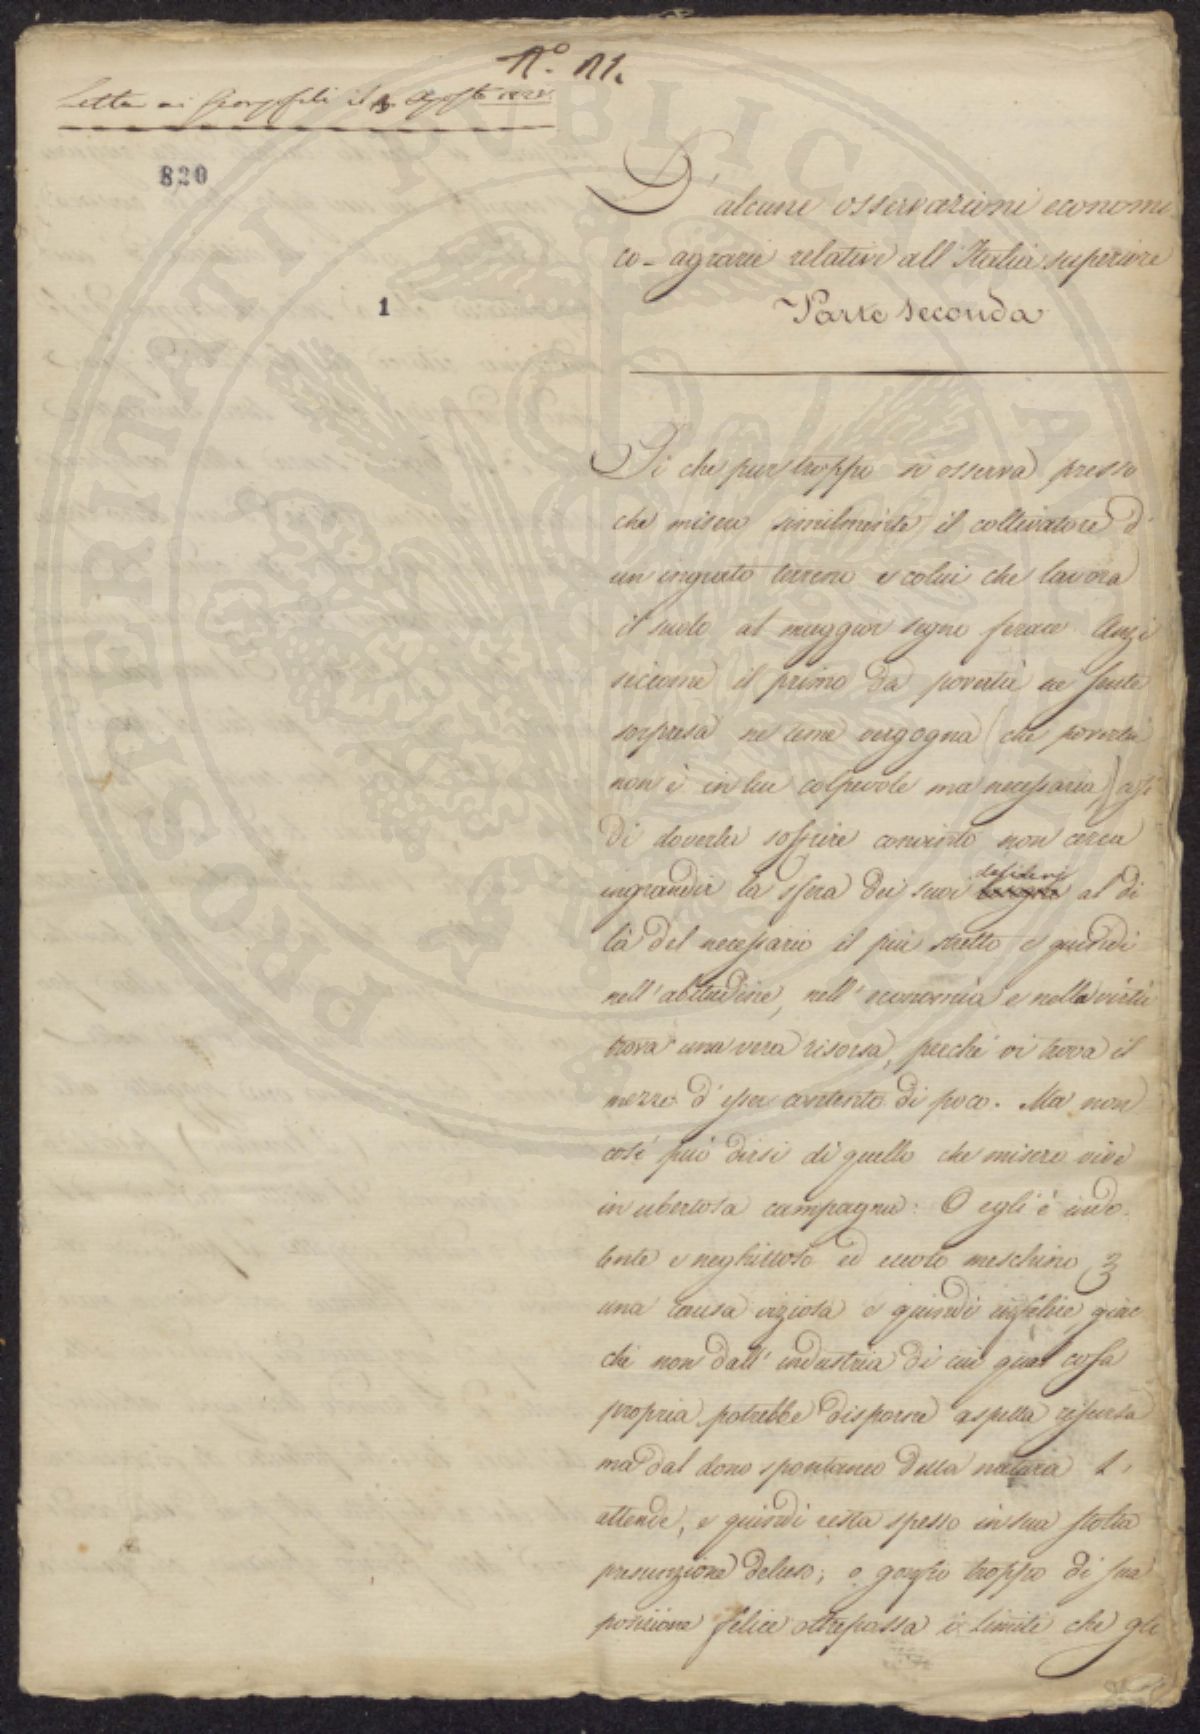 N.º 11.
Letta ai Georgofili il 3 Agosto
820
1
D'alcune osservazioni economi
co-agrarie relative all'Italia superiore
Parte Seconda
che pur troppo si osserva presso
che misero similmente il coltivatore d'
un ingrato terreno e colui che lavora
il suolo al maggior segno ferace. Anzi
siccome il primo da povertà ne sente
sorpresa ne teme vergogna (che povertà
non è in lui colpevole ma necessaria)
di doverla soffrire convinto non cerca
ingrandir la sfera dei suoi desiderj al di
là del necessario il più stretto e quindi
nell'abitudine, nell'economia e nella virtù
trova una vera risorsa, perché vi trova il
mezzo d'esser contento di poco. Ma non
così può dirsi di quello che misero vive
in ubertosa campagna: O egli è indo
lente e neghittoso ed eccolo meschino
una causa viziosa e quindi infelice giac
chè non dall'industria di cui qual cosa
propria potrebbe disporre aspetta risorsa
ma dal dono spontaneo della natura l'
attende, e quindi resta spesso in sua stolta
presunzione deluso; o gonfio troppo di sua
posizione felice oltrepassa i limiti che gli
PROSPERITATI PUBLICAE AUGENDAE